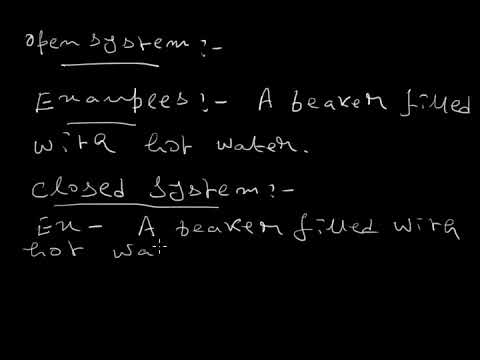 open system :-
Examples :- A beaker filled
with hot water.
closed system :-
Ex - A beaker filled with
hot wat